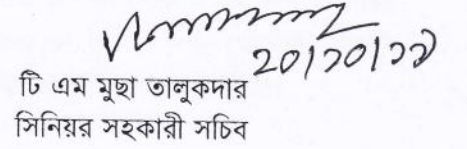 ২০।১০।১১
টি এম মুছা তালুকদার
সিনিয়র সহকারী সচিব